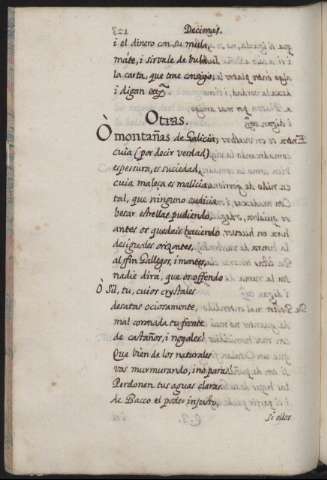 127 Decimas.
i el dinero con su mula,
mate, i sirvale de bula
la carta, que trae consigo,
i digan
Otras.
Ò montañas de Galicia,
cuia (por decir verdad)
espesura, es suciedad,
cuia maleça es malicia
tal, que ninguno cudicia
besar estrellas pudiendo,
antes os quedais haciendo
desiguales orizontes,
al fin Gallegos, i montes,
nadie dira, que os offendo
Ò Sil, tu, cuios crystales
desatas ociosamente,
mal coronada tu frente
de castaños, i nogales!
Que bien de los naturales
vas murmurando, i no paras!
Perdonen tus aguas claras
de Bacco el poder injusto,
Si ellos